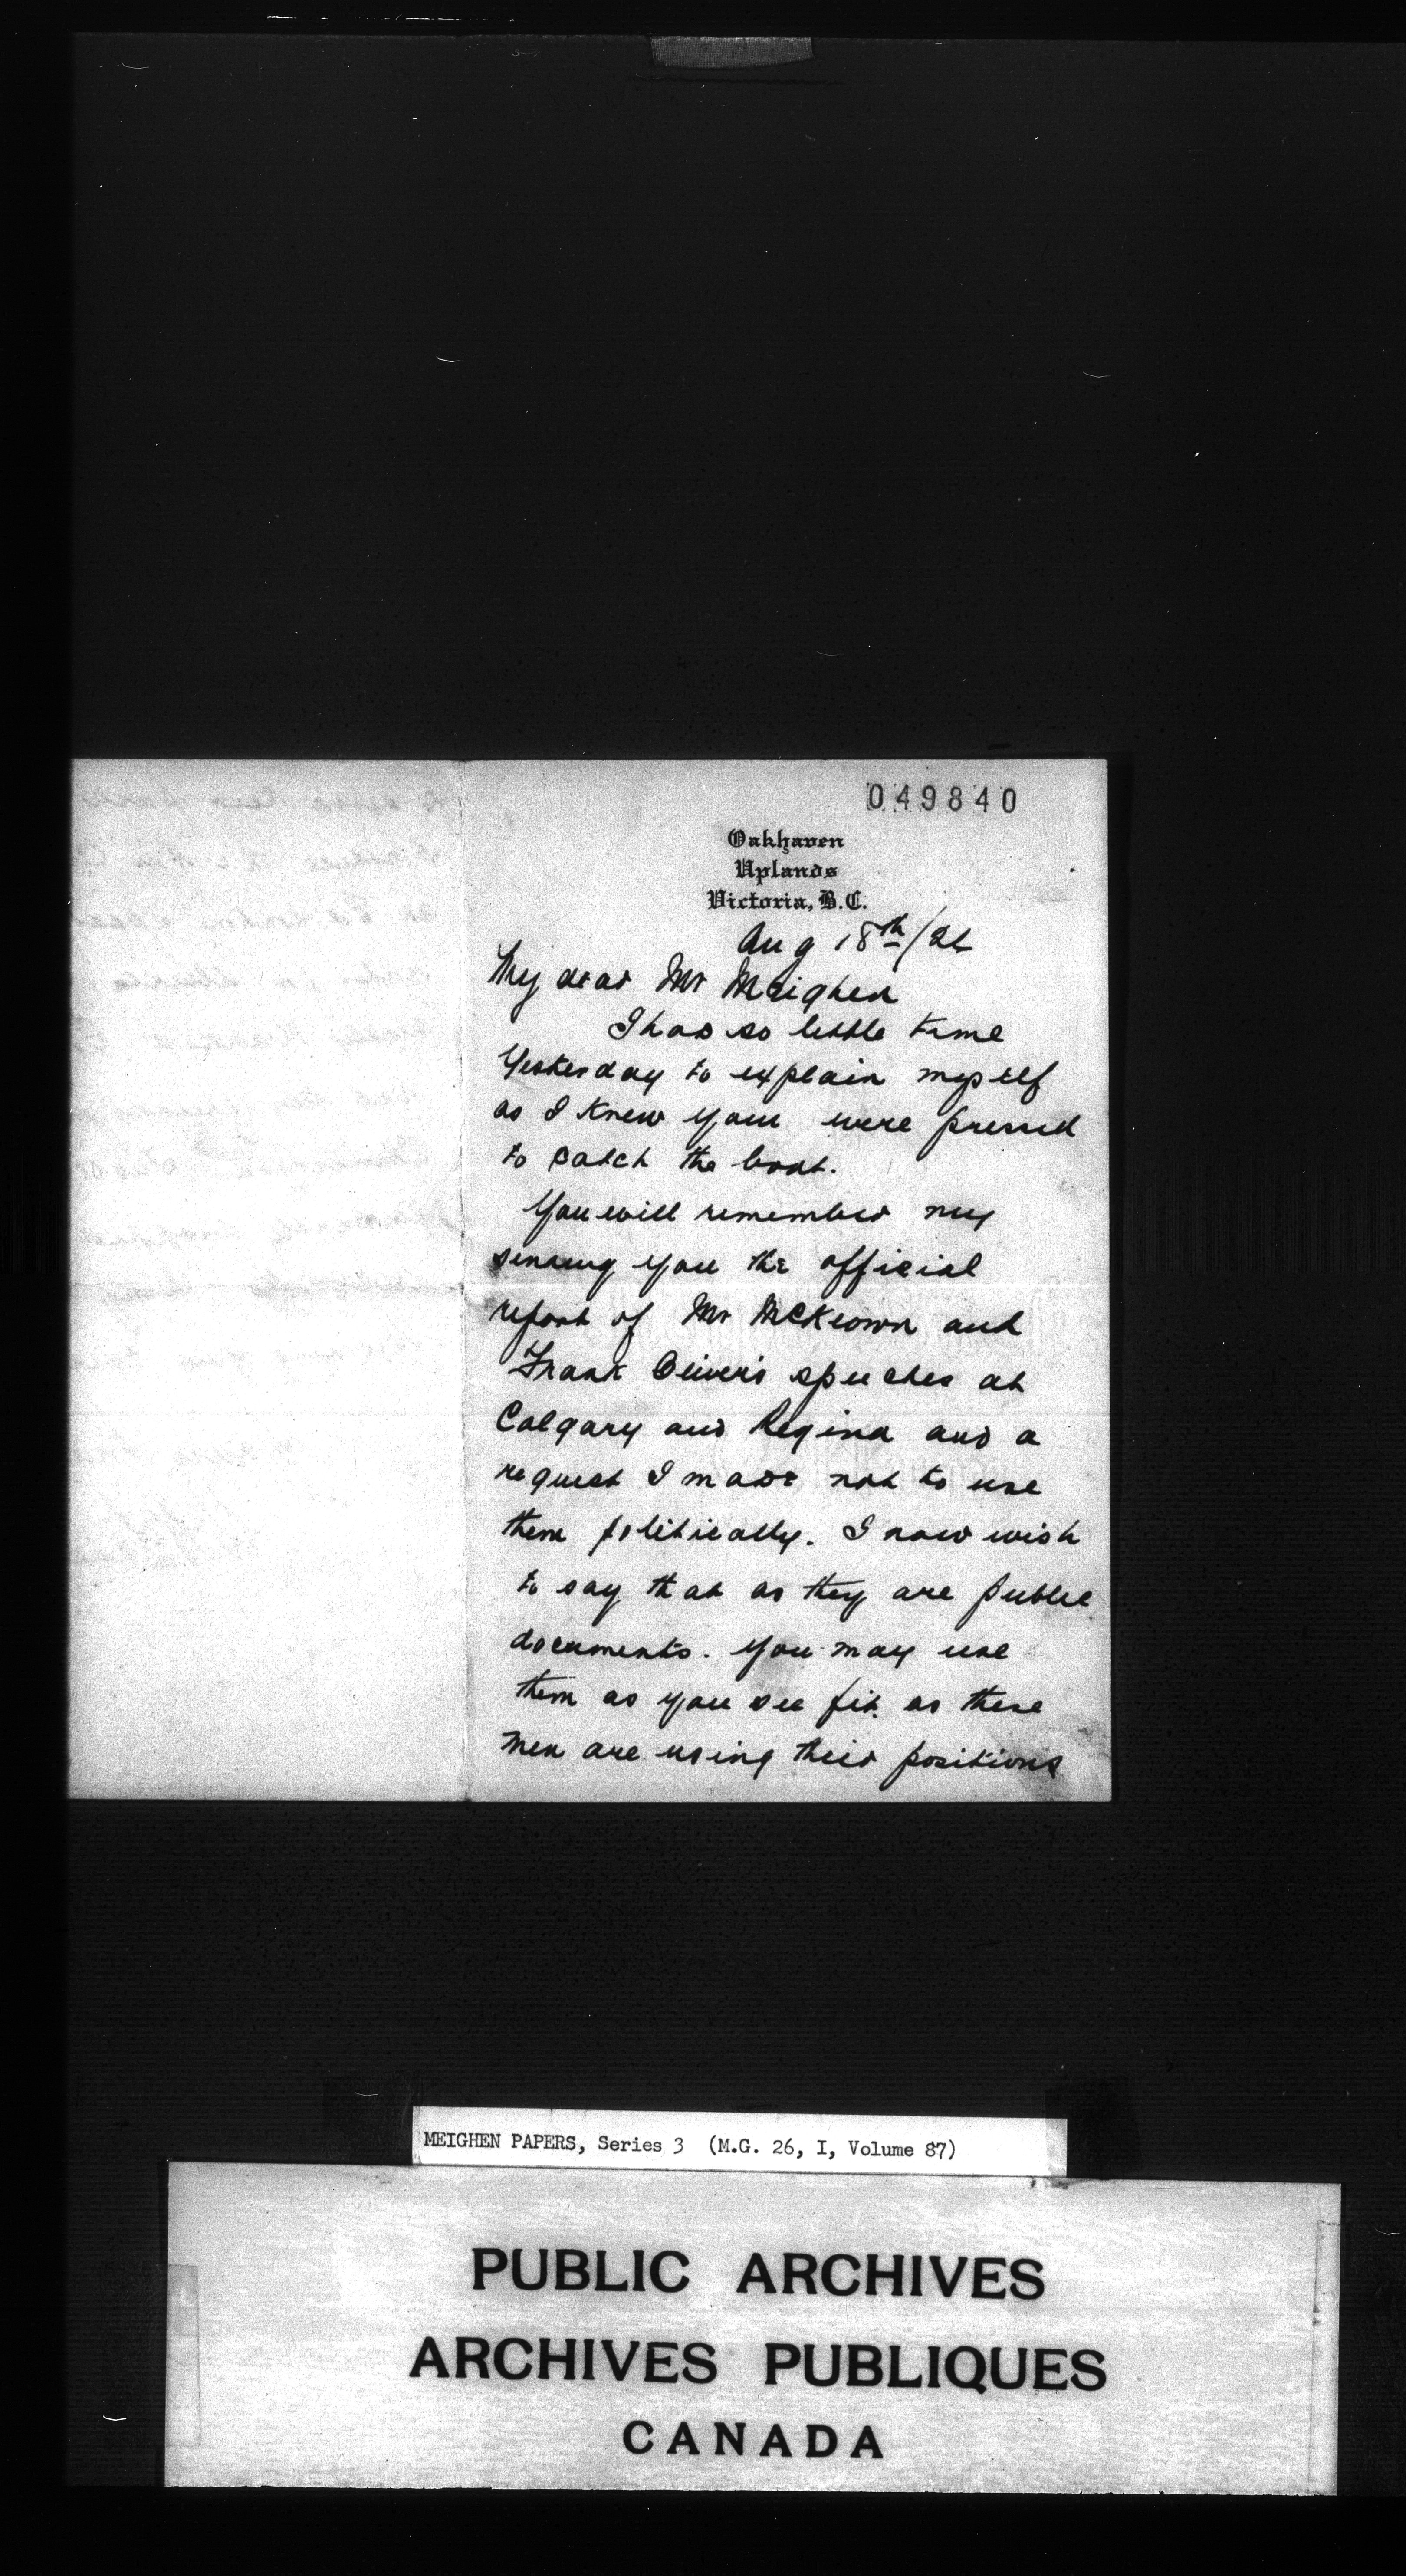 049840
Oakhaven
Uplands
Victoria, B.C.
Aug 18th/26
My dear Mr Meighen
I had so little time
Yesterday to explain myself
as I knew you were pressed
to catch the boat.
You will remember my
sending you the official
report of Mr McKeown and
Frank Oliver's speeches at
Calgary and Regina and a
request I made not to use
them politically. I now wish
to say that as they are public
documents. you may use
them as you see fit. as these
men are using their positions
MEIGHEN PAPERS, Series 3 (M.G. 26, I, Volume 87)
PUBLIC ARCHIVES
ARCHIVES PUBLIQUES
CANADA